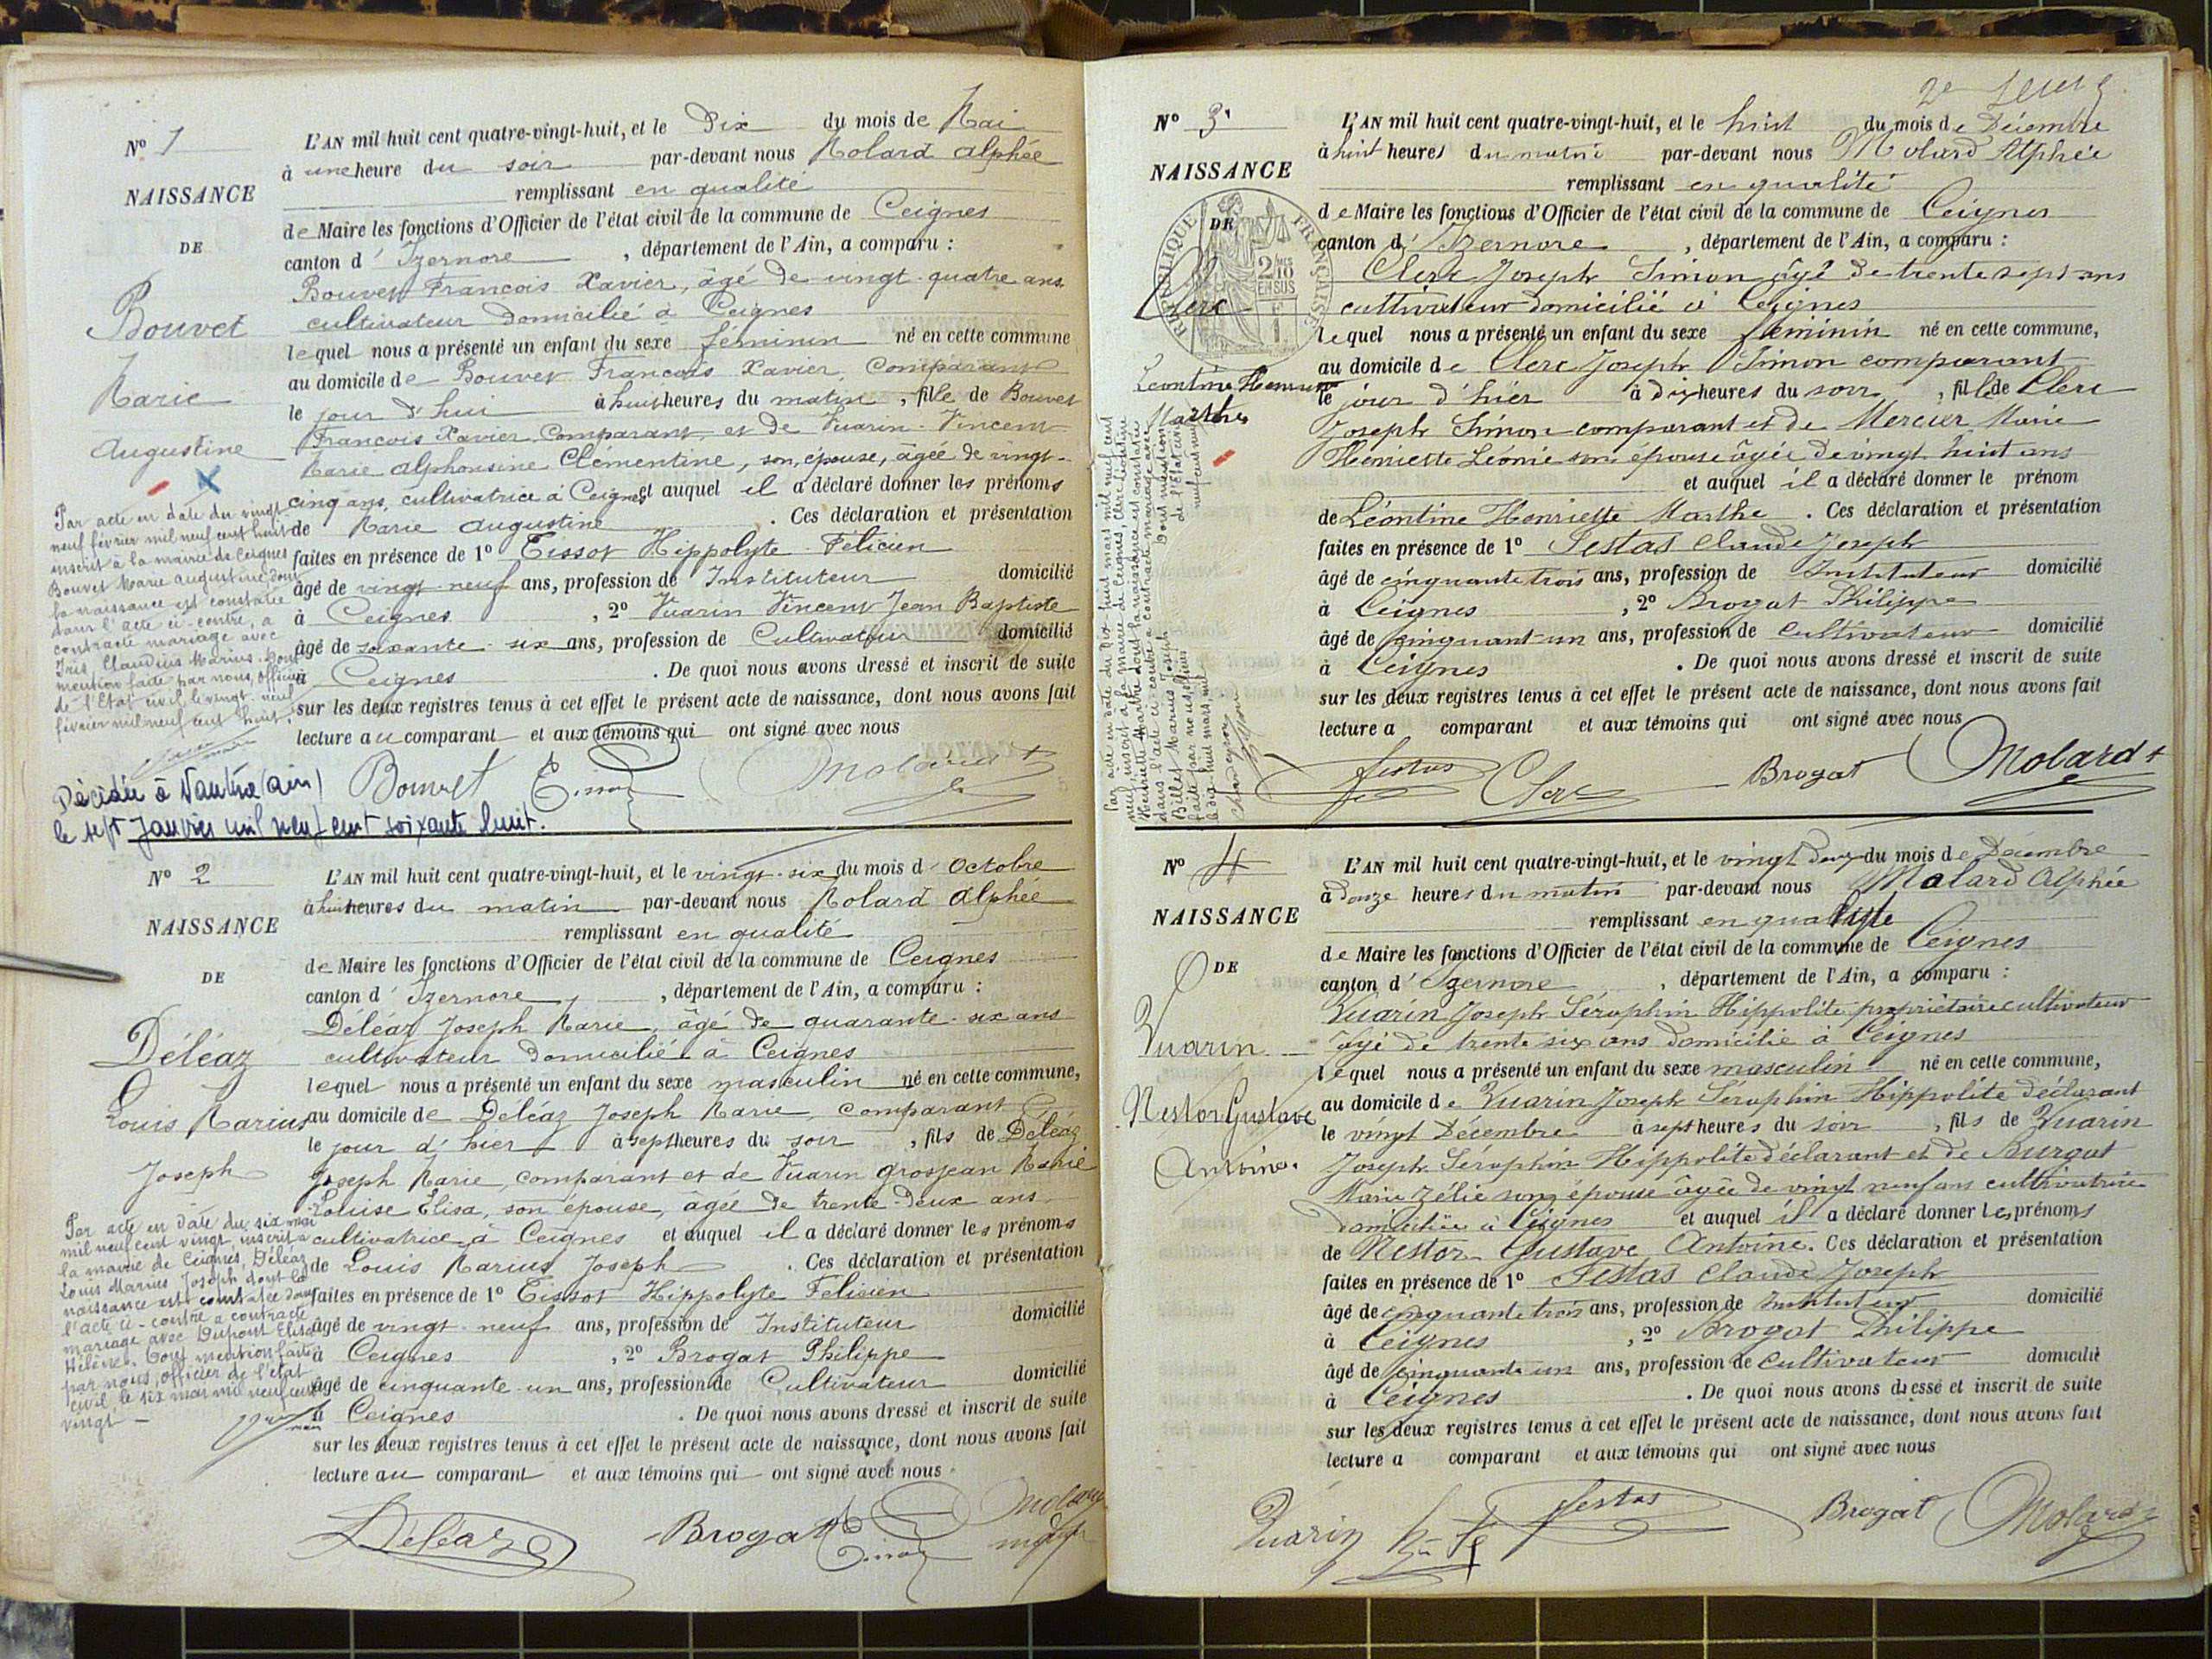 N° 1
NAISSANCE
DE
Bouvet
Marie
Augustine
L'AN mil huit cent quatre-vingt-huit, et le Dix du mois de Mai
à une heure du soir par-devant nous Molard Alphée
remplissant en qualité
de Maire les fonctions d'Officier de l'état civil de la commune de Ceignes
canton d'Izernore, département de l'Ain, a comparu :
Bouvet François Xavier, âgé de vingt-quatre ans
cultivateur domicilié à Ceignes
lequel nous a présenté un enfant du sexe féminin né en cette commune
au domicile de Bouvet François Xavier, Comparant
le jour d'hui à huit heures du matin, fille de Bouvet
François Xavier, Comparant, et de Vuarin-Vincent
Marie Alphonsine Clémentine, son épouse, âgée de vingt-
cinq ans, cultivatrice à Ceignes et auquel il a déclaré donner les prénoms
de Marie Augustine. Ces déclaration et présentation
faites en présence de 1° Tissot Hippolyte Félicien
âgé de vingt neuf ans, profession de Instituteur domicilié
à Ceignes, 2° Vuarin Vincent Jean Baptiste
âgé de soixante-six ans, profession de Cultivateur domicilié
à Ceignes. De quoi nous avons dressé et inscrit de suite
sur les deux registres tenus à cet effet le présent acte de naissance, dont nous avons fait
lecture au comparant et aux témoins qui ont signé avec nous
Par acte en date du vingt
neuf février mil neuf cent huit
inscrit à la mairie de Ceignes
Bouvet Marie Augustine dont
la naissance est constatée
dans l'acte ci-contre, a
contracté mariage avec
Claudius Marius. Dont
mention faite par nous, Officier
de l'Etat civil, le vingt-neuf
février mil neuf cent huit.
Bouvet Tissot Molard
Décédée à Nantua (Ain)
le sept Janvier mil neuf cent soixante huit.
N° 2
NAISSANCE
DE
Déléaz
Louis Marius
Joseph
L'AN mil huit cent quatre-vingt-huit, et le vingt-six du mois d'Octobre
à huit heures du matin par-devant nous Molard Alphée
remplissant en qualité
de Maire les fonctions d'Officier de l'état civil de la commune de Ceignes
canton d'Izernore, département de l'Ain, a comparu :
Déléaz Joseph Marie, âgé de quarante-six ans
cultivateur domicilié à Ceignes
lequel nous a présenté un enfant du sexe masculin né en cette commune,
au domicile de Deléaz Joseph Marie, comparant
le jour d'hier à sept heures du soir, fils de Déléaz
Joseph Marie, comparant et de Vuarin Grosjean Marie
Louise Elisa, son épouse, âgée de trente-deux ans
cultivatrice à Ceignes et auquel il a déclaré donner les prénoms
de Louis Marius Joseph. Ces déclaration et présentation
faites en présence de 1° Tissot Hippolyte Félicien
âgé de vingt-neuf ans, profession de Instituteur domicilié
à Ceignes, 2° Brogat Philippe
âgé de cinquante-un ans, profession de Cultivateur domicilié
à Ceignes. De quoi nous avons dressé et inscrit de suite
sur les deux registres tenus à cet effet le présent acte de naissance, dont nous avons fait
lecture au comparant et aux témoins qui ont signé avec nous
Par acte en date du six mai
mil neuf cent vingt, inscrit à
la mairie de Ceignes, Déléaz
Louis Marius Joseph dont la
naissance est constatée dans
l'acte ci-contre a contracté
mariage avec Dupont Elisa
Hélène. Dont mention faite
par nous, officier de l'état
civil, le six mai mil neuf cent
vingt
Déléaz Brogat Tissot Molard
2e
N° 3
NAISSANCE
DE
RÉPUBLIQUE FRANÇAISE
2/10 EN SUS
Clerc
Léontine Henriette
Marthe
L'AN mil huit cent quatre-vingt-huit, et le huit du mois de Décembre
à huit heures du matin par-devant nous Molard Alphée
remplissant en qualité
de Maire les fonctions d'Officier de l'état civil de la commune de Ceignes
canton d'Izernore, département de l'Ain, a comparu :
Clerc Joseph Simon âgé de trente sept ans
cultivateur domicilié à Ceignes
lequel nous a présenté un enfant du sexe féminin né en cette commune,
au domicile de Clerc Joseph Simon comparant
le jour d'hier à dix heures du soir, fille de Clerc
Joseph Simon comparant et de Mercier Marie
Henriette Léonie son épouse âgée de vingt huit ans
et auquel il a déclaré donner le prénom
de Léontine Henriette Marthe. Ces déclaration et présentation
faites en présence de 1° Festas Claude Joseph
âgé de cinquante trois ans, profession de Instituteur domicilié
à Ceignes, 2° Brogat Philippe
âgé de cinquant-un ans, profession de cultivateur domicilié
à Ceignes. De quoi nous avons dressé et inscrit de suite
sur les deux registres tenus à cet effet le présent acte de naissance, dont nous avons fait
lecture a comparant et aux témoins qui ont signé avec nous
Par acte en date du dix huit mars mil neuf cent
neuf, inscrit à la mairie de Ceignes, Clerc Léontine
Henriette Marthe dont la naissance est constatée
dans l'acte ci-contre a contracté mariage avec
Billet Marius Joseph Dont mention
faite par nous officier de l'état civil
le dix huit mars mil neuf cent neuf
Festas Clerc Brogat Molard
N° 4
NAISSANCE
DE
Vuarin
Nestor Gustave
Antoine.
L'AN mil huit cent quatre-vingt-huit, et le vingt deux du mois de Décembre
à Douze heures du matin par-devant nous Molard Alphée
remplissant en qualité
de Maire les fonctions d'Officier de l'état civil de la commune de Ceignes
canton d'Izernore, département de l'Ain, a comparu :
Vuarin Joseph Séraphin Hippolite propriétaire cultivateur
âgé de trente six ans domicilié à Ceignes
lequel nous a présenté un enfant du sexe masculin né en cette commune,
au domicile de Vuarin Joseph Séraphin Hippolite déclarant
le vingt Décembre à sept heures du soir, fils de Vuarin
Joseph Séraphin Hippolite déclarant et de Burgat
Marie Zélie son épouse âgée de vingt neuf ans cultivatrice
domiciliée à Ceignes et auquel il a déclaré donner les prénoms
de Nestor Gustave Antoine. Ces déclaration et présentation
faites en présence de 1° Festas Claude Joseph
âgé de cinquante trois ans, profession de Instituteur domicilié
à Ceignes, 2° Brogat Philippe
âgé de cinquante un ans, profession de cultivateur domicilié
à Ceignes. De quoi nous avons dressé et inscrit de suite
sur les deux registres tenus à cet effet le présent acte de naissance, dont nous avons fait
lecture a comparant et aux témoins qui ont signé avec nous
Vuarin Festas Brogat Molard